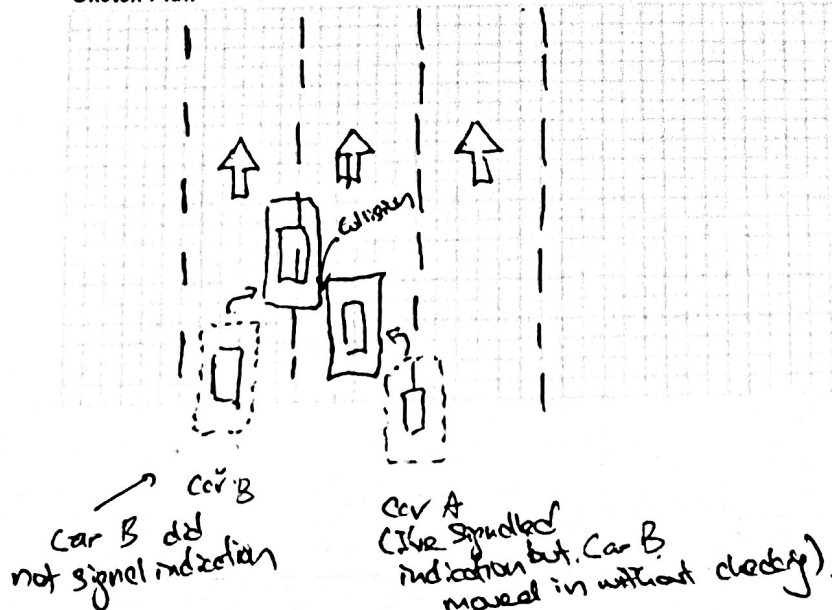 Sketch Plan
Collision
Car B
Car B did
not signal indication
Car A
(I've signalled
indication but Car B
moved in without checking).